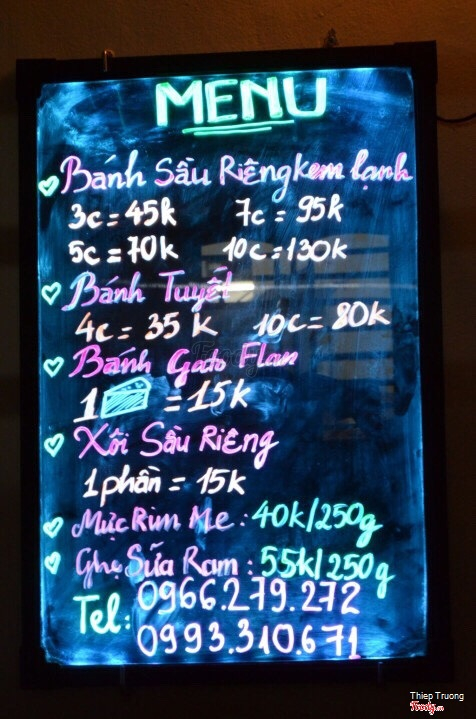 MENU
Bánh Sầu Riêng kem lạnh
3c = 45k 7c = 95k
5c = 70k 10c = 130k
Bánh Tuyết
4c = 35k 10c = 80k
Bánh Gato Flan
1 = 15k
Xôi Sầu Riêng
1 phần = 15k
Mực Rim Me : 40k/250g
Ghẹ Sữa Ram : 55k/250g
Tel: 0966.279.272
0993.310.671
Thiep Truong
Foody.vn